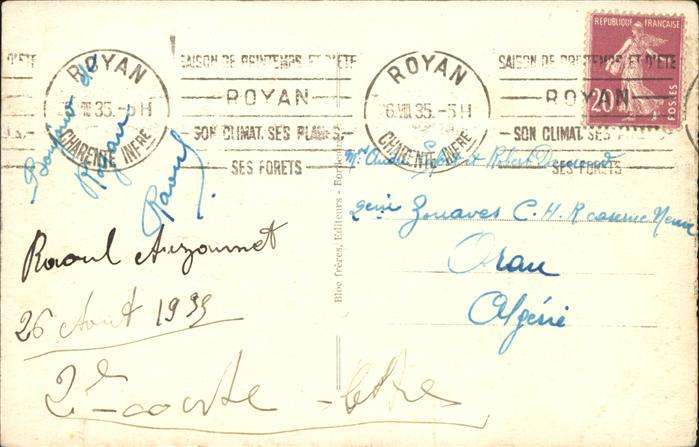 ROYAN
35 - 5H
CHARENTE INFRE
SAISON DE PRINTEMPS ET D'ÉTÉ
ROYAN
SON CLIMAT. SES PLAGES.
SES FORETS
ROYAN
6 VIII 35 - 5H
CHARENTE INFRE
SAISON DE PRINTEMPS ET D'ÉTÉ
ROYAN
SON CLIMAT. SES
SES FORETS
REPUBLIQUE FRANÇAISE
20c
POSTES
Bonjour de
Royan
Raoul
Raoul Auzounnet
26 Août 1935
2e carte
Bloc frères, Editeurs - Bordeaux
et Robert
2eme Zouaves C.H.R caserne Neuve
Oran
Algérie